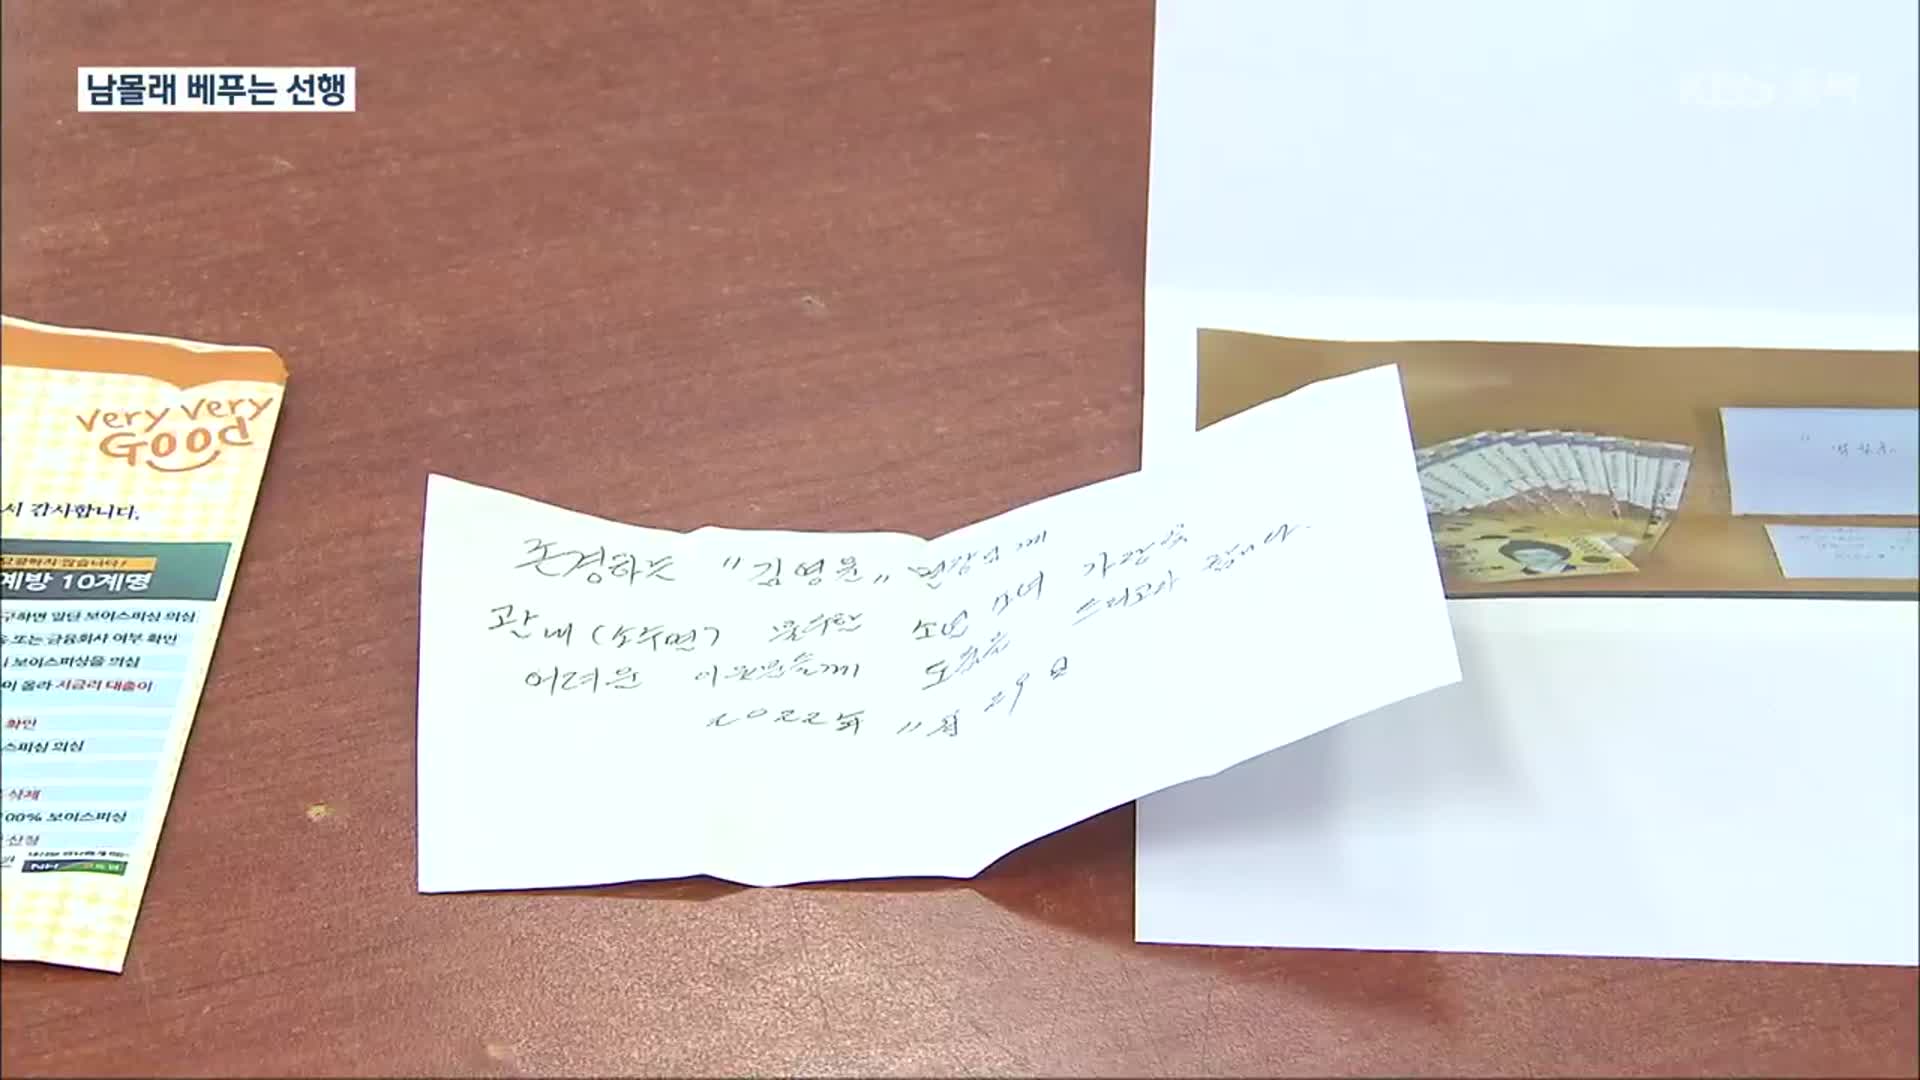 남몰래 베푸는 선행
KBS 충북
very very
Good
시 감사합니다.
계방 10계명
구하면 일단 보이스피싱 의심
또는 금융회사 여부 확인
보이스피싱을 의심
이 올라 저금리 대출이
확인
스피싱 의심
삭제
100% 보이스피싱
신청
NH
존경하는 "김영윤" 면장님께
관내(소수면) 불우한 소년 소녀 가장및
어려운 이웃분들께 도움을 드리고자 합니다.
2022年 11月 29日